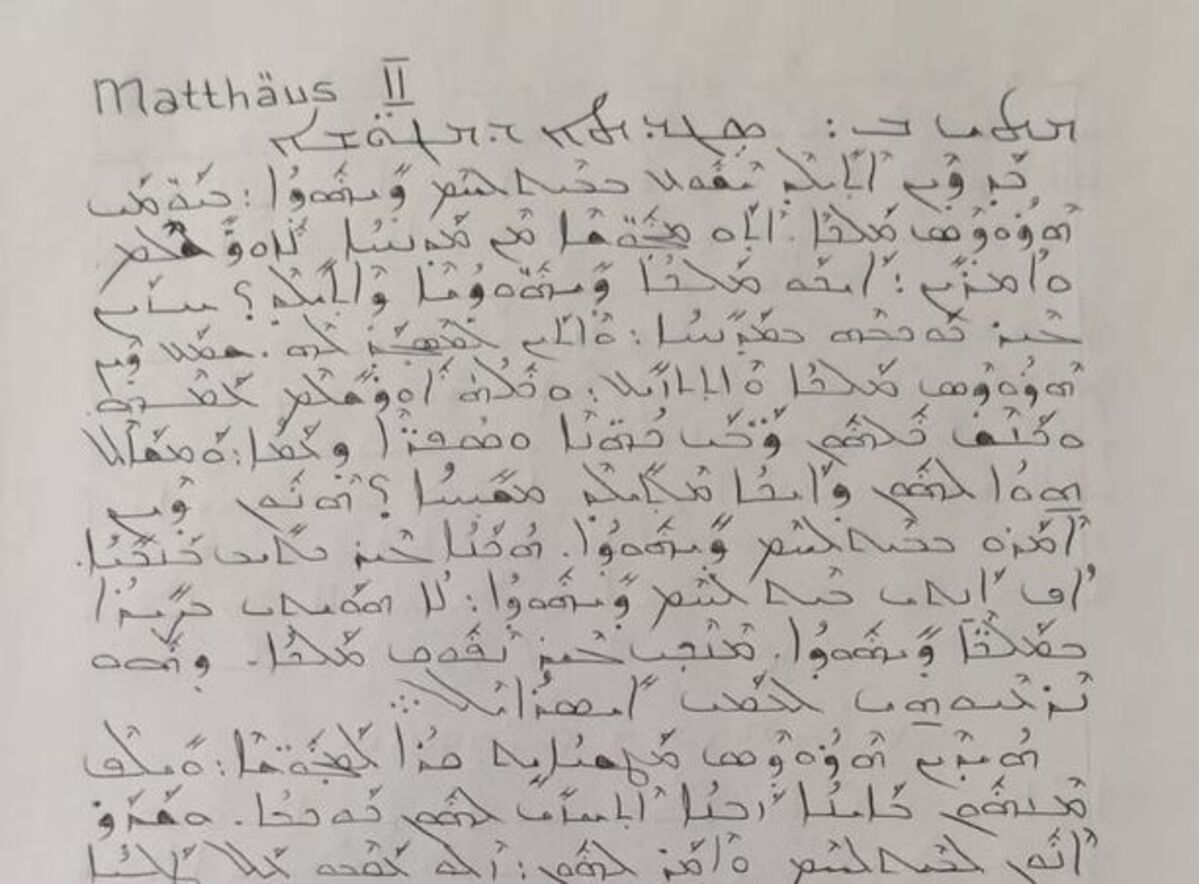 Matthäus II
ܟܕ ܕܝܢ ܐܬܝܠܕ ܝܫܘܥ ܒܒܝܬ ܠܚܡ ܕܝܗܘܕܐ: ܒܝܘܡܝ
ܗܪܘܕܣ ܡܠܟܐ. ܐܬܘ ܡܓܘܫܐ ܡܢ ܡܕܢܚܐ ܠܐܘܪܫܠܡ.
ܘܐܡܪܝܢ: ܐܝܟܘ ܡܠܟܐ ܕܝܗܘܕܝܐ ܕܐܬܝܠܕ؟ ܚܙܝܢ
ܓܝܪ ܟܘܟܒܗ ܒܡܕܢܚܐ: ܘܐܬܝܢ ܠܡܣܓܕ ܠܗ. ܫܡܥ ܕܝܢ
ܗܪܘܕܣ ܡܠܟܐ ܘܐܬܬܙܝܥ: ܘܟܠܗ ܐܘܪܫܠܡ ܥܡܗ.
ܘܟܢܫ ܟܠܗܘܢ ܪܒܝ ܟܗܢܐ ܘܣܦܪܐ ܕܥܡܐ: ܘܡܫܐܠ
ܗܘܐ ܠܗܘܢ ܕܐܝܟܐ ܡܬܝܠܕ ܡܫܝܚܐ؟ ܗܢܘܢ ܕܝܢ
ܐܡܪܘ ܒܒܝܬ ܠܚܡ ܕܝܗܘܕܐ. ܗܟܢܐ ܓܝܪ ܟܬܝܒ ܒܢܒܝܐ.
ܐܦ ܐܢܬܝ ܒܝܬ ܠܚܡ ܕܝܗܘܕܐ: ܠܐ ܗܘܝܬܝ ܒܨܝܪܐ
ܒܡܠܟܐ ܕܝܗܘܕܐ. ܡܢܟܝ ܓܝܪ ܢܦܘܩ ܡܠܟܐ. ܕܗܘ
ܢܪܥܝܘܗܝ ܠܥܡܝ ܐܝܣܪܐܝܠ܀
ܗܝܕܝܢ ܗܪܘܕܣ ܡܛܫܝܐܝܬ ܩܪܐ ܠܡܓܘܫܐ: ܘܝܠܦ
ܡܢܗܘܢ ܒܐܝܢܐ ܙܒܢܐ ܐܬܚܙܝ ܠܗܘܢ ܟܘܟܒܐ. ܘܫܕܪ
ܐܢܘܢ ܠܒܝܬ ܠܚܡ ܘܐܡܪ ܠܗܘܢ: ܙܠܘ ܥܩܒܘ ܥܠ ܛܠܝܐ